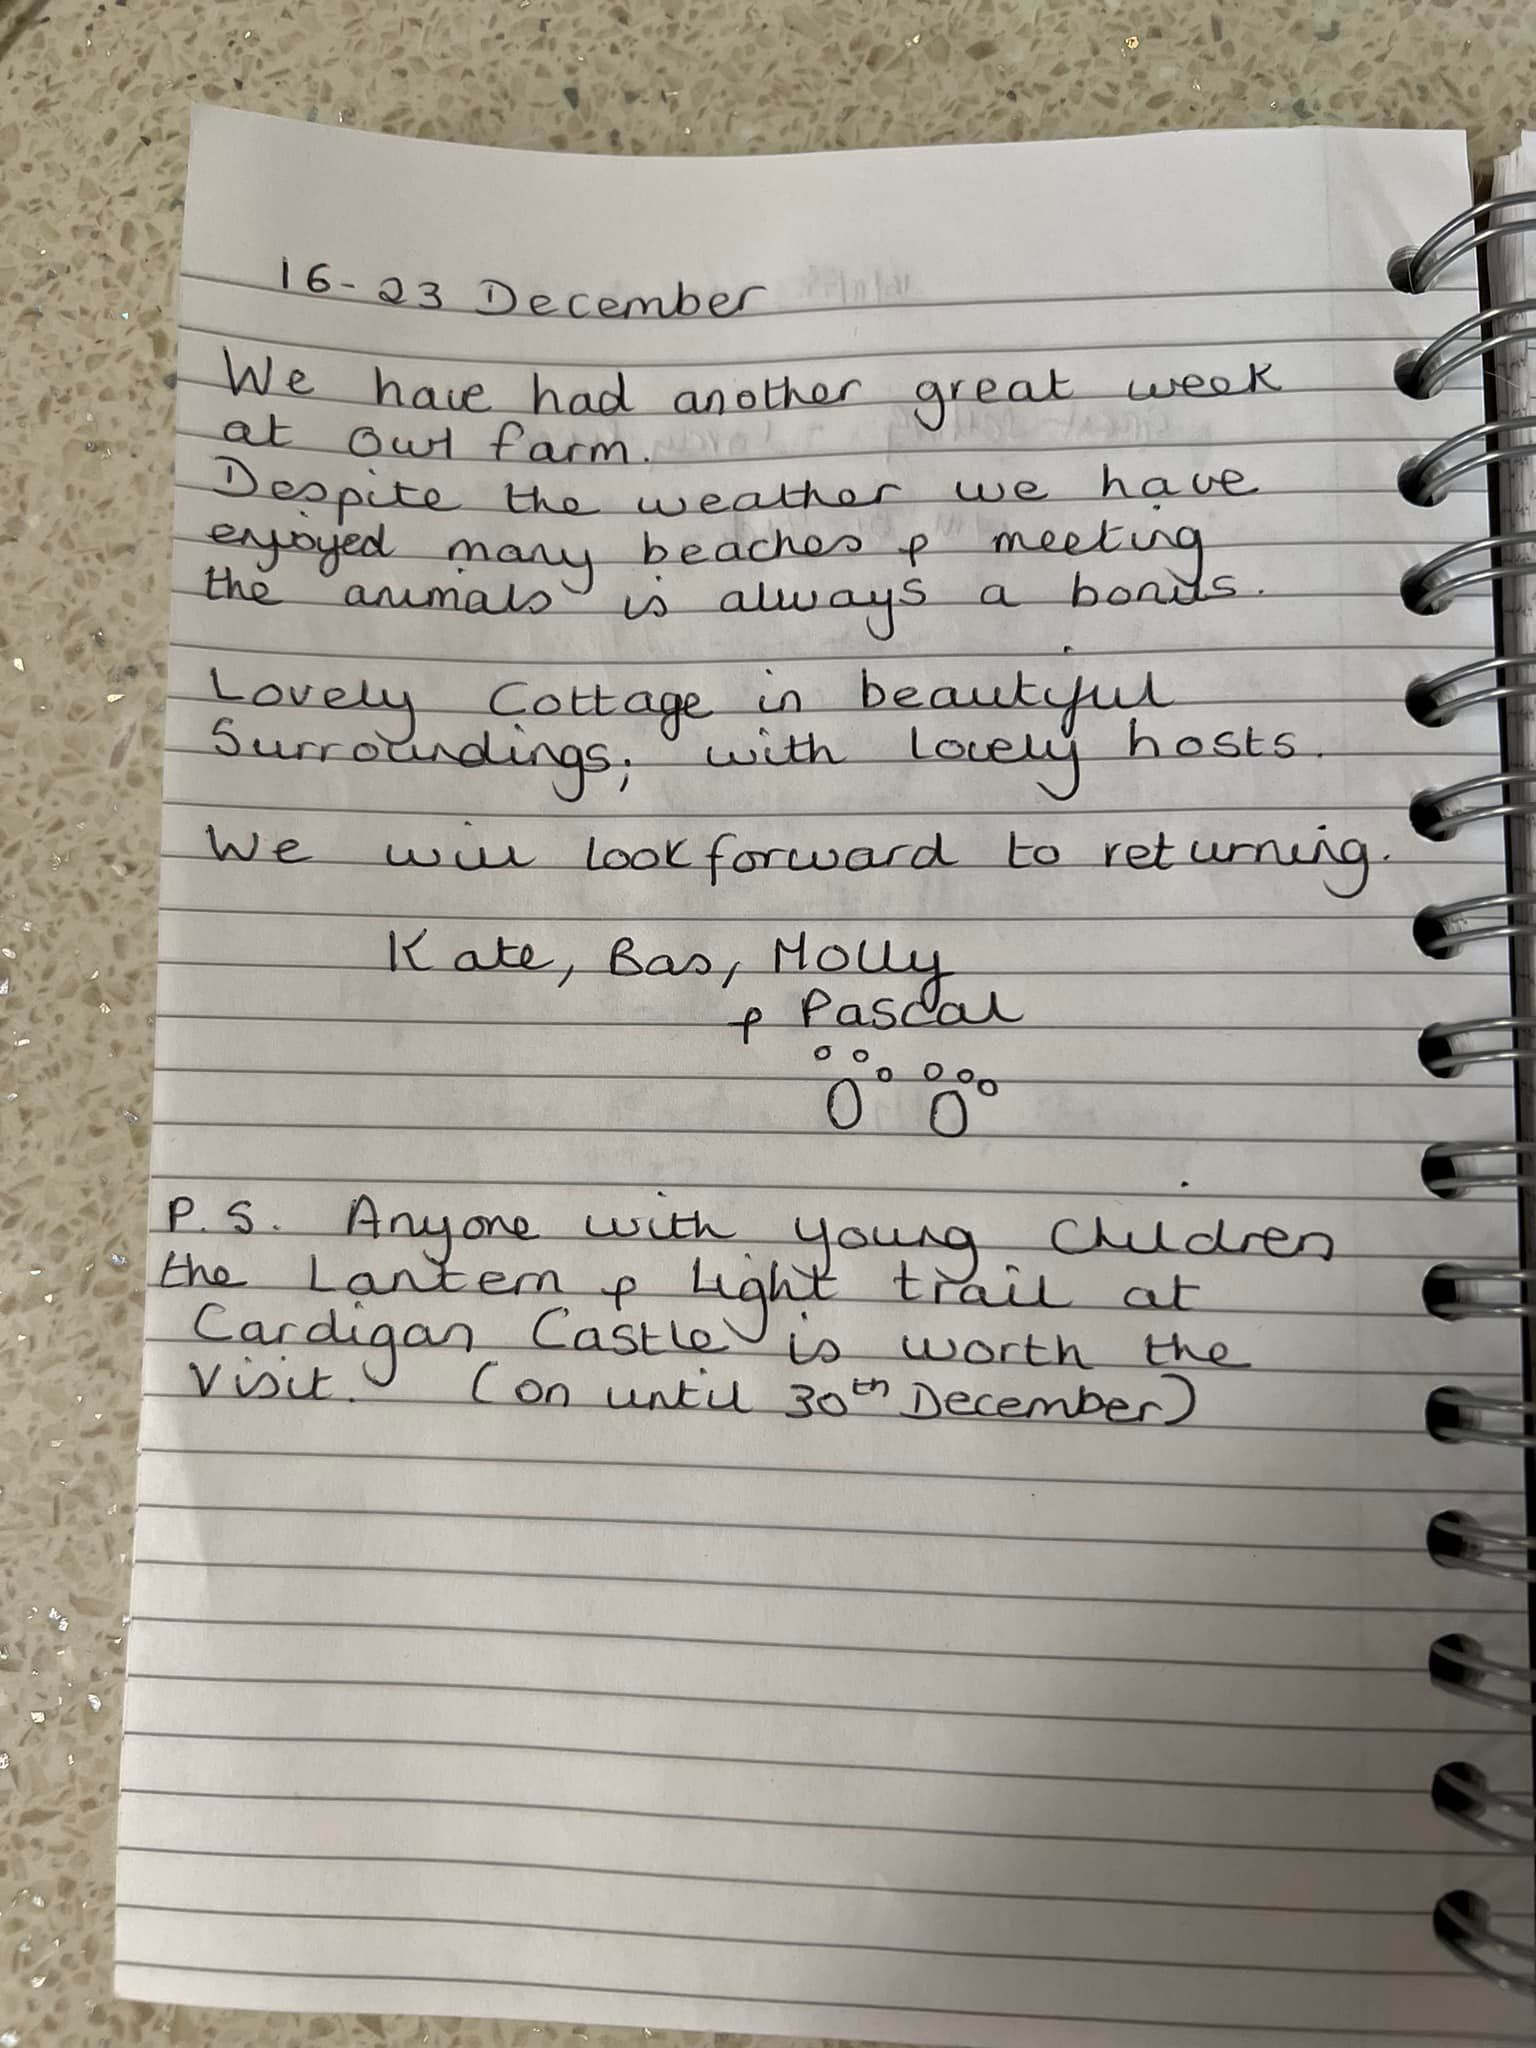 16-23 December
We have had another great week
at Owl farm.
Despite the weather we have
enjoyed many beaches & meeting
the animals is always a bonus.
Lovely Cottage in beautiful
Surroundings; with lovely hosts.
We will look forward to returning.
Kate, Bas, Molly
& Pascal
P.S. Anyone with young Children
the Lantern & Light trail at
Cardigan Castle is worth the
Visit. (on until 30th December)